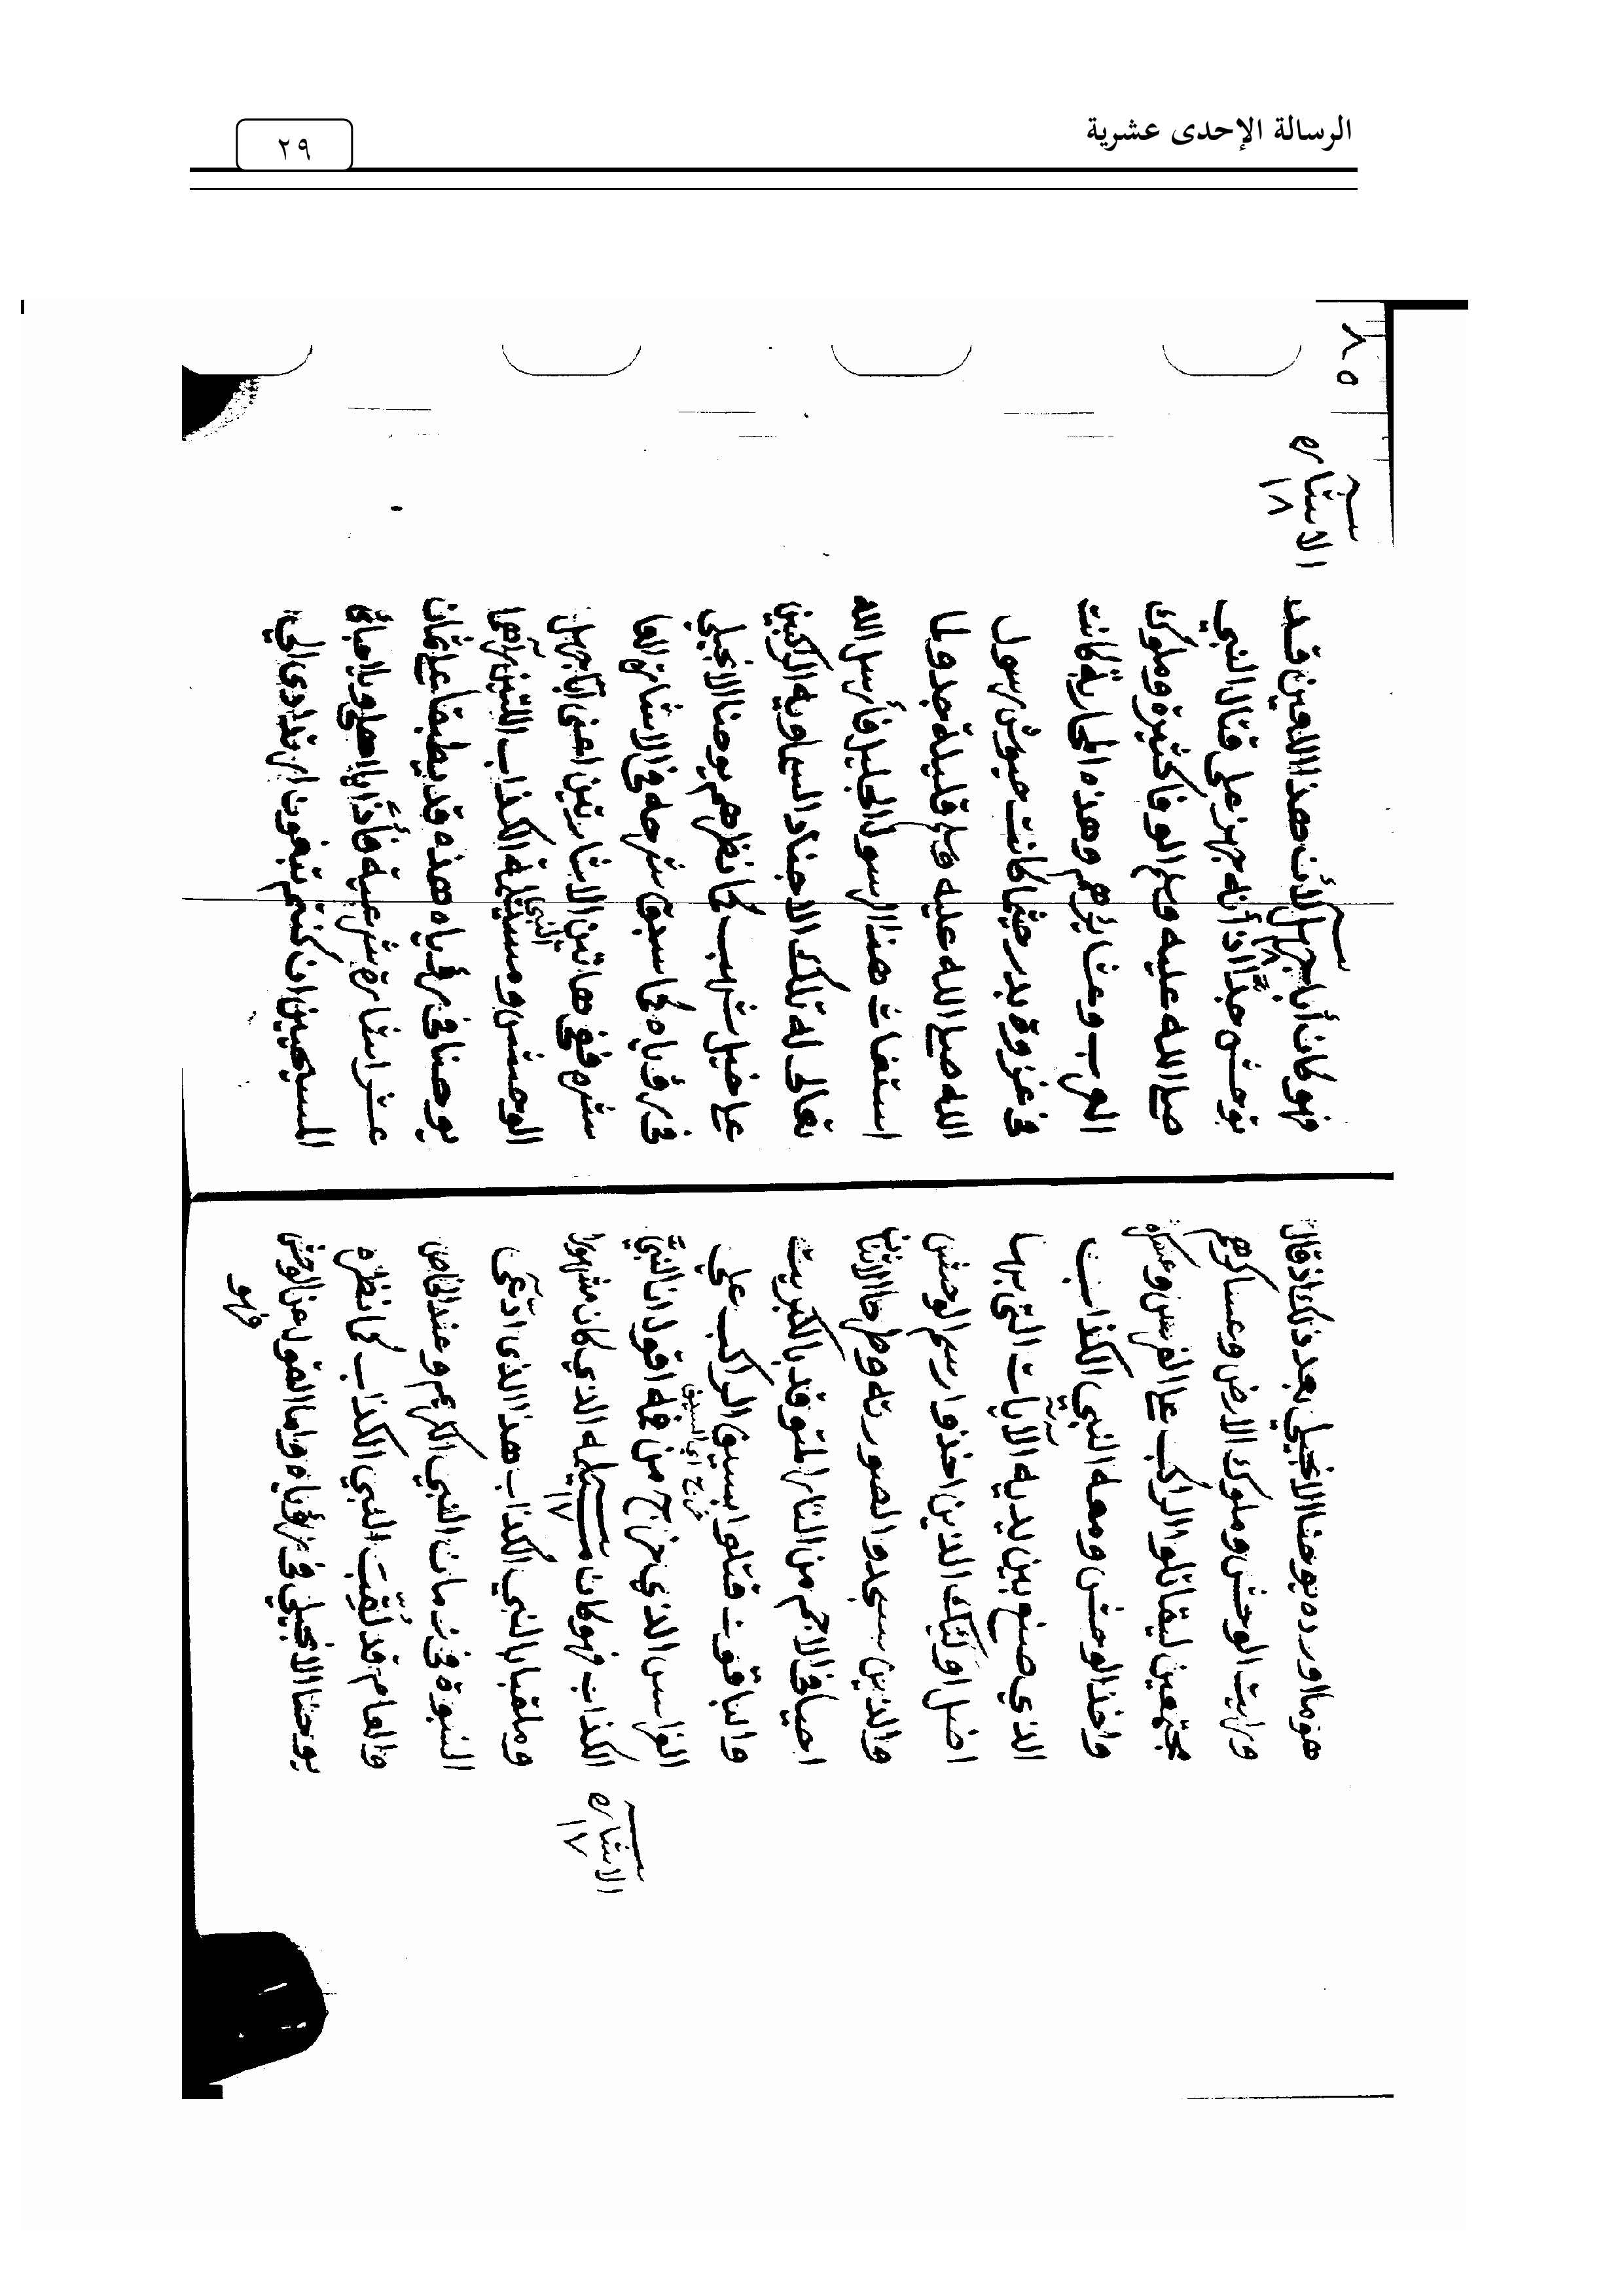 الرسالة الإحدى عشرية
٢٩
٨٥
هو ما اورده يوحنا الانجيلي بعد ذلك اذ قال
ورايت الوحش وملوك الارض وعساكرهم
مجتمعين ليقاتلوا الراكب على الفرس وعسكره
واخذ الوحش ومعه النبي الكذاب
الذي صنع بين يديه الايات التي بها
اضل اوليك الذين اخذوا رسم الوحش
والذين سجدوا لصورته وطرحا الاثنان
احيا في الاجم من النار المتوقد بالكبريت
والباقون قتلوا بسيف الراكب علي
خرج اي السيف
الفرس الذي خرج من فمه اقول ان النبيّ
الاشاره ١٧
الكذاب فهو كان مسيلمه الذي كان مشهورا
١٧
وملقبا بالنبي الكذاب هذا الذي ادّعى
النبوة في زمان النبي الكريم وعند الخاص
والعام قد لُقّبَ النبي الكذاب كما نظره
يوحنا الانجيلي في رؤياه واما القول عن الوحش
فهو
الاشاره ١٨
فهو كان أباجهل لأن هذا اللعين قد
١٨
توحش جداً اذ أنه جهز على قتال النبي
صلى الله عليه وسلم الوفا كثيرة وملوك
العرب وعشايرهم وهذه المحاربة كانت
في غزوة بدر حيثما كانت جيوش رسول
الله صلى الله عليه وسلم قليلة جدولما
استغاث هذا الرسول الجليل فأرسل الله
تعالى له تلك الاجناد السماويه الراكبين
على خيل شهب كما نظرهم يوحنا الانجيلي
في رؤياه كما سبق شرحه في الاشارة
ففي هاتين الاشارتين اعني أباجهل
النبي
الوحش ومسيلمة الكذاب اللتين رآهما
يوحنا في رؤياه هذه قد يطبقا على ثمان
عشر اشارة شرعية فأذا يا اهلي ويا احبائي
المسيحيين ان كنتم تبغون